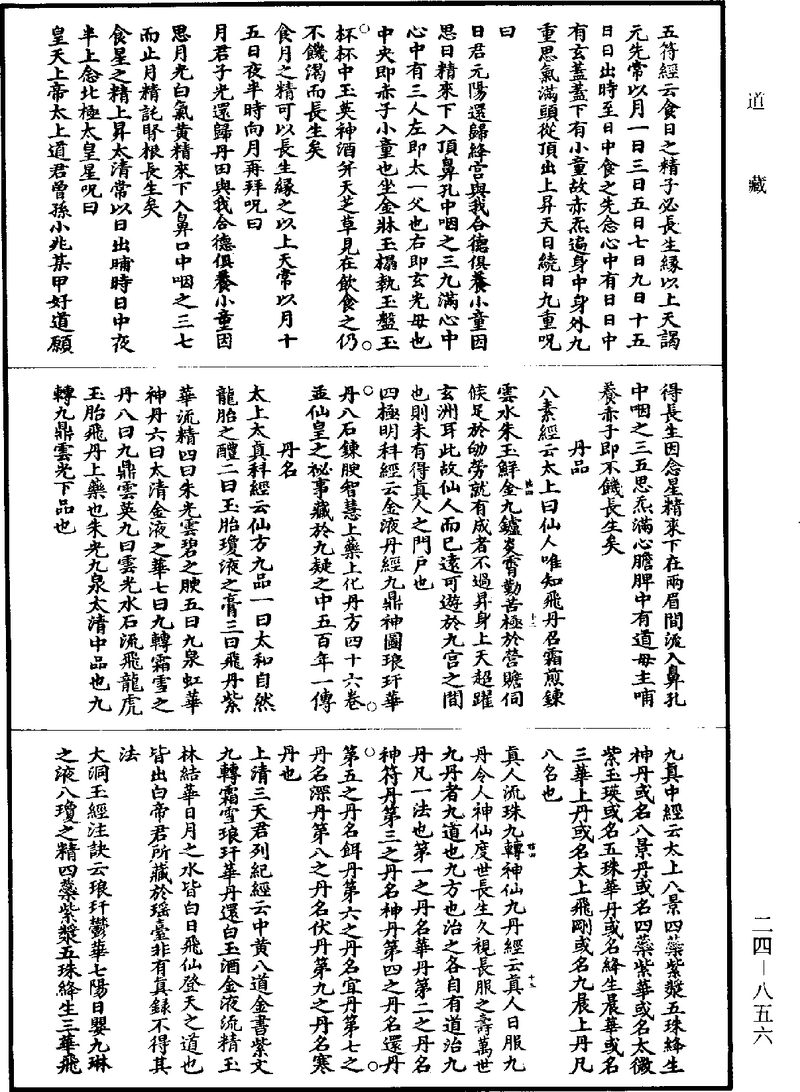 道藏
五符經云食日之精子必長生緣以上天謁
元先常以月一日三日五日七日九日十五
日日出時至日中食之先念心中有日日中
有玄蓋蓋下有小童故赤炁遍身中身外九
重思氣滿頭從頂出上昇天日繞日九重呪
曰
日君元陽還歸絳宮與我合德俱養小童因
思日精來下入頂鼻孔中咽之三九滿心中
心中有三人左即太一父也右即玄光母也
中央即赤子小童也坐金牀玉榻執玉盤玉
杯杯中玉英神酒并天芝草見在飲食之仍
不饑渴而長生矣
食月之精可以長生緣之以上天常以月十
五日夜半時向月再拜呪曰
月君子光還歸丹田與我合德俱養小童因
思月光白氣黃精來下入鼻口中咽之三七
而止月精託腎根長生矣
食星之精上昇太清常以日出晡時日中夜
半上念北極太皇星呪曰
皇天上帝太上道君曾孫小兆某甲好道願
得長生因念星精來下在兩眉間流入鼻孔
中咽之三五思炁滿心膽脾中有道母主哺
養赤子即不饑長生矣
丹品
八素經云太上曰仙人唯知飛丹召霜煎鍊
雲水朱玉鮮金九鑪炎霄勤苦極於營贍伺
候足於劬勞就有成者不過昇身上天超躍
玄洲耳此故仙人而已遠可遊於九宮之間
也則未有得真人之門戶也
四極明科經云金液丹經九鼎神圖琅玕華
丹八石鍊腴智慧上藥上化丹方四十六卷
並仙皇之祕事藏於九疑之中五百年一傳
丹名
太上太真科經云仙方九品一曰太和自然
龍胎之醴二曰玉胎瓊液之膏三曰飛丹紫
華流精四曰朱光雲碧之腴五曰九泉虹華
神丹六曰太清金液之華七曰九轉霜雪之
丹八曰九鼎雲英九曰雲光水石流飛龍虎
玉胎飛丹上藥也朱光九泉太清中品也九
轉九鼎雲光下品也
九真中經云太上八景四蘂紫漿五珠絳生
神丹或名八景丹或名四蘂紫華或名太微
紫玉瑛或名五珠華丹或名絳生晨華或名
三華上丹或名太上飛剛或名九晨上丹凡
八名也
真人流珠九轉神仙九丹經云真人日服九
丹令人神仙度世長生久視長服之壽萬世
九丹者九道也九方也治之各自有道治九
丹凡一法也第一之丹名華丹第二之丹名
神符丹第三之丹名神丹第四之丹名還丹
第五之丹名餌丹第六之丹名宜丹第七之
丹名深丹第八之丹名伏丹第九之丹名寒
丹也
上清三天君列紀經云中黃八道金書紫文
九轉霜雪琅玕華丹還白玉酒金液流精玉
林結華日月之水皆白日飛仙登天之道也
皆出白帝君所藏於瑤臺非有真錄不得其
法
大洞玉經注訣云琅玕鬱華七陽日嬰九琳
之液八瓊之精四蘂紫漿五珠絳生三華飛
二四—八五六